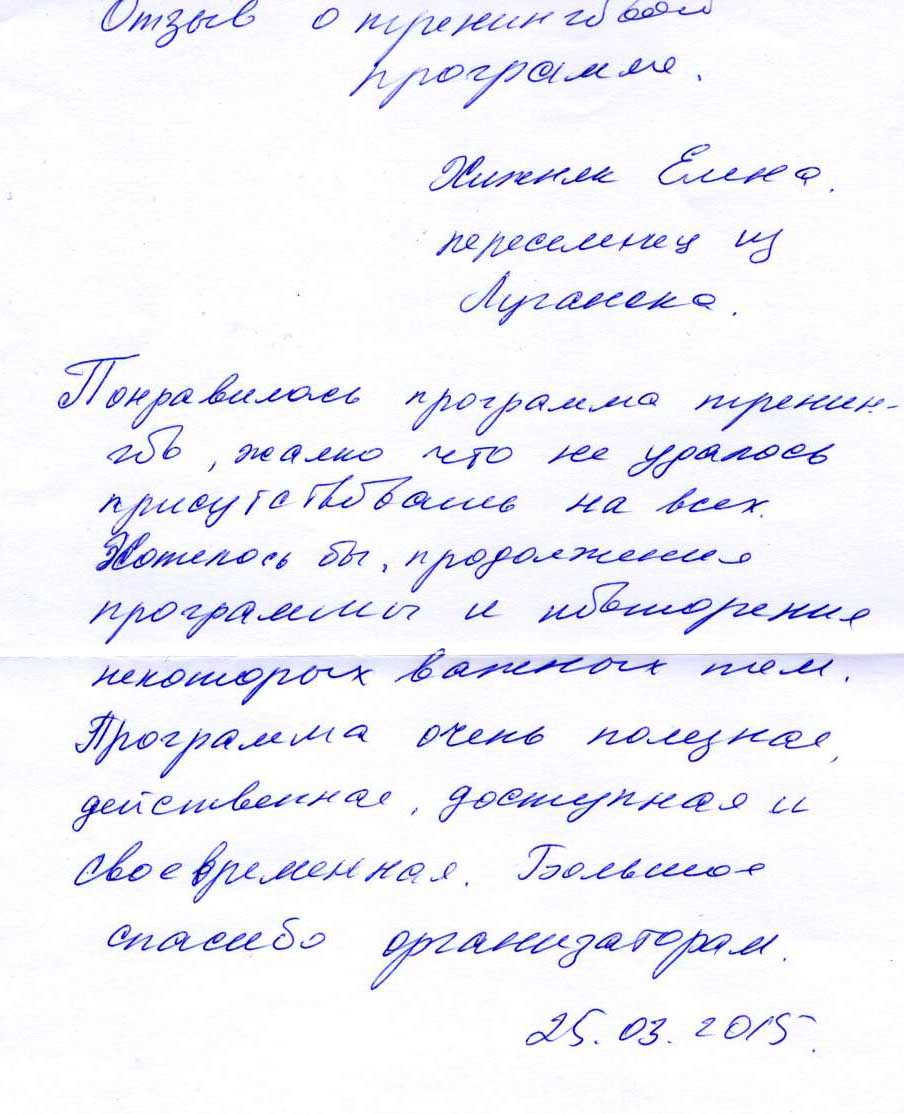 Отзыв о тренинговой
программе.
Хижняк Елена.
переселенец из
Луганска.
Понравилась программа тренин-
гов, жалко что не удалось
присутствовать на всех.
Хотелось бы, продолжения
программы и повторения
некоторых важных тем.
Программа очень полезная,
действенная, доступная и
своевременная. Большое
спасибо организаторам.
25.03.2015.